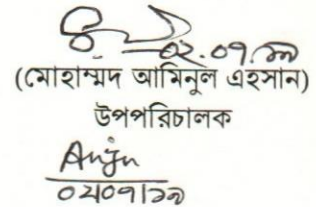 ০২.০৭.১৯
(মোহাম্মদ আমিনুল এহসান)
উপপরিচালক
Anjn
০২/০৭/১৯